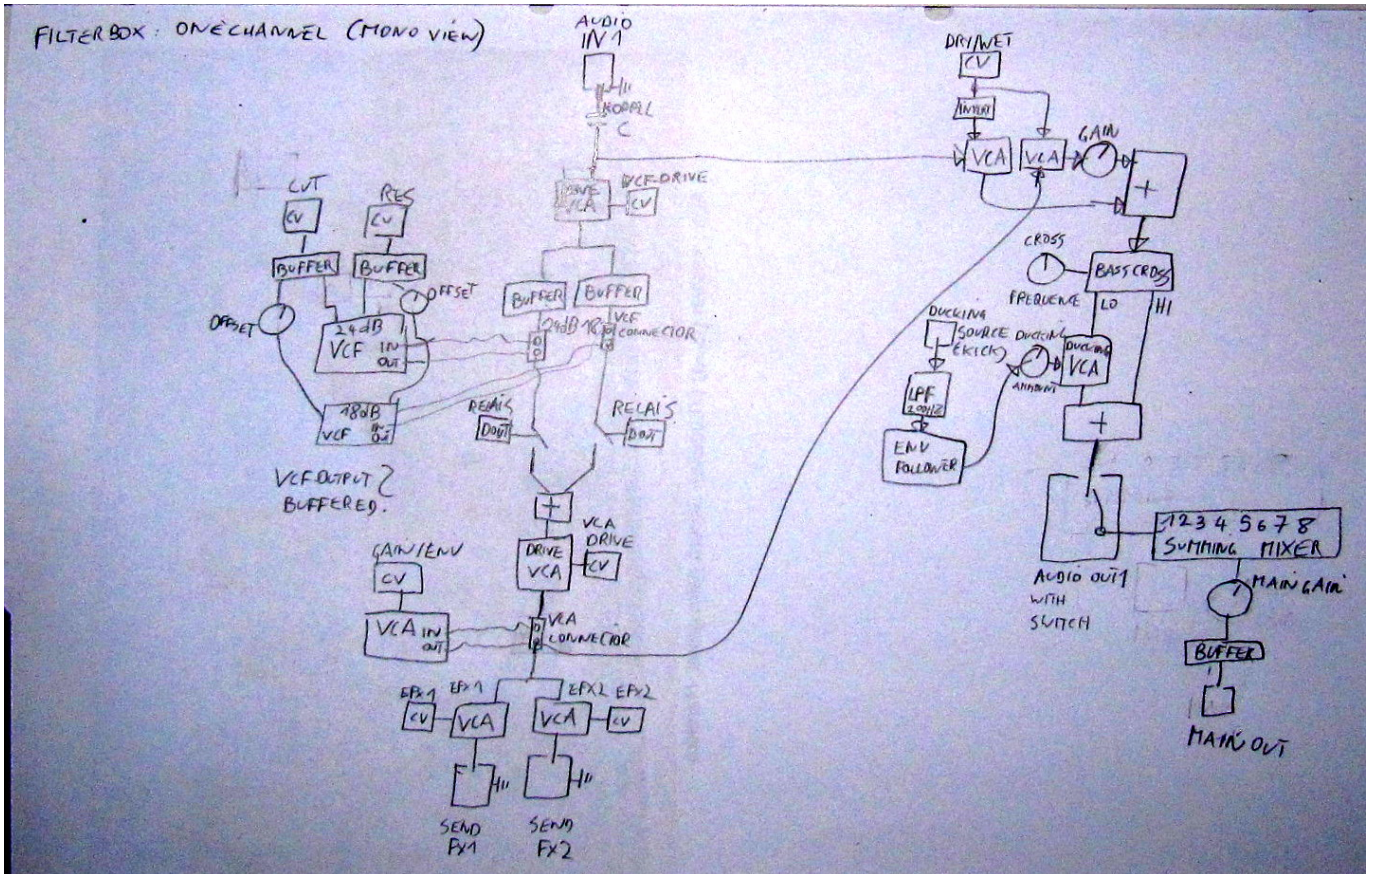 FILTERBOX: ONE CHANNEL (MONO VIEW)
AUDIO
IN 1
KOPPEL
C
DRIVE
VCA
VCF-DRIVE
CV
CUT
CV
RES
CV
BUFFER
BUFFER
OFFSET
OFFSET
24dB
VCF
IN
OUT
18dB
VCF
IN
OUT
VCF OUTPUT
BUFFERED.
BUFFER
BUFFER
24dB
18
VCF
CONNECTOR
RELAIS
DOUT
RELAIS
DOUT
+
VCA
DRIVE
DRIVE
VCA
CV
GAIN/ENV
CV
VCA
IN
OUT
VCA
CONNECTOR
EFX1
EFX1
CV
VCA
EFX2
EFX2
VCA
CV
SEND
FX1
SEND
FX2
DRY/WET
CV
INVERT
VCA
VCA
GAIN
+
CROSS
FREQUENCE
BASSCROSS
LO
HI
DUCKING
SOURCE
(KICK)
LPF
200HZ
ENV
FOLLOWER
DUCKING
AMOUNT
DUCKING
VCA
+
AUDIO OUT1
WITH
SWITCH
1 2 3 4 5 6 7 8
SUMMING MIXER
MAIN GAIN
BUFFER
MAIN OUT